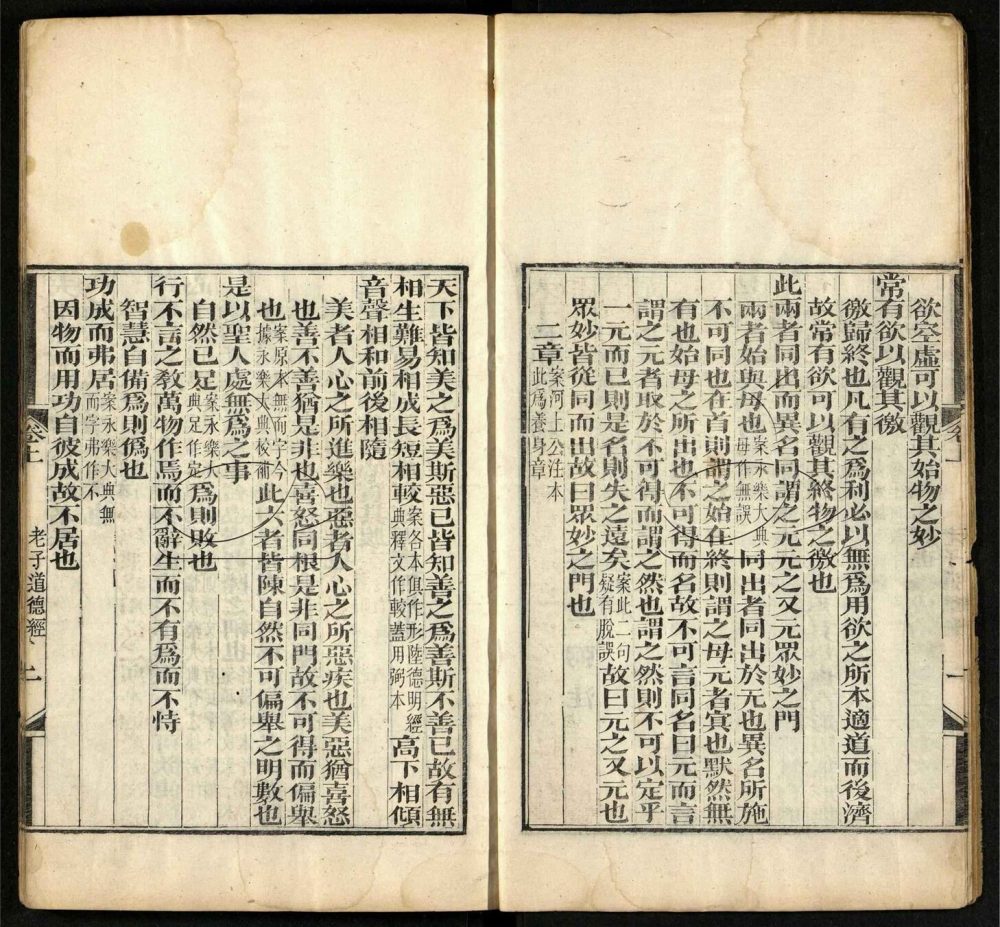 欲空虛可以觀其始物之妙
常有欲以觀其徼
徼歸終也凡有之爲利必以無爲用欲之所本適道而後濟
故常有欲可以觀其終物之徼也
此兩者同出而異名同謂之元元之又元眾妙之門
兩者始與母也案永樂大典母作無誤同出者同出於元也異名所施
不可同也在首則謂之始在終則謂之母元者冥也默然無
有也始母之所出也不可得而名故不可言同名曰元而言
謂之元者取於不可得而謂之然也謂之然則不可以定乎
一元而已則是名則失之遠矣案此二句疑有脫誤故曰元之又元也
眾妙皆從同而出故曰眾妙之門也
二章案河上公注本此爲養身章
天下皆知美之爲美斯惡已皆知善之爲善斯不善已故有無
相生難易相成長短相較案各本俱作形陸德明經典釋文作較蓋用弼本高下相傾
音聲相和前後相隨
美者人心之所進樂也惡者人心之所惡疾也美惡猶喜怒
也善不善猶是非也喜怒同根是非同門故不可得而偏舉
也案原本無而字今據永樂大典校補此六者皆陳自然不可偏舉之明數也
是以聖人處無爲之事
自然已足案永樂大典足作定爲則敗也
行不言之敎萬物作焉而不辭生而不有爲而不恃
智慧自備爲則僞也
功成而弗居案永樂大典無而字弗作不
因物而用功自彼成故不居也
卷上
老子道德經
二